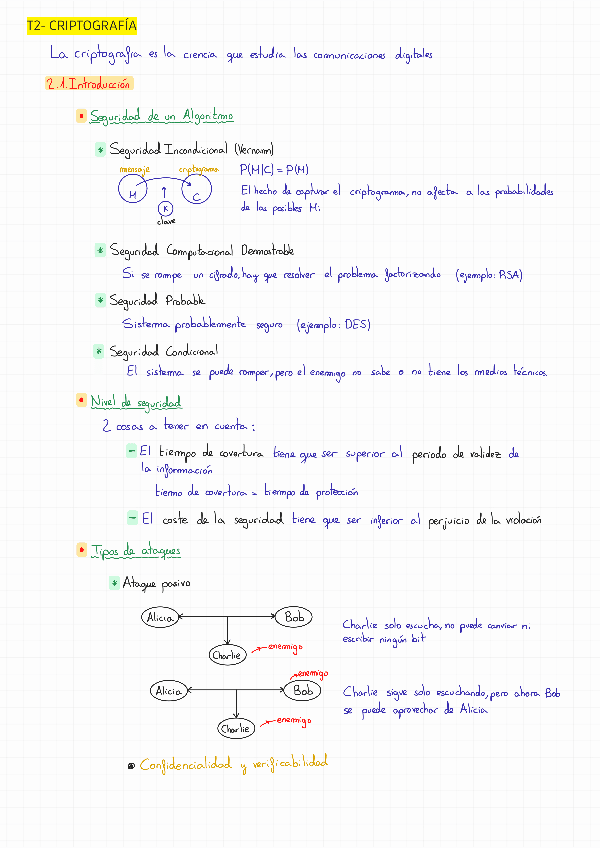 T2- CRIPTOGRAFÍA
La criptografía es la ciencia que estudia las comunicaciones digitales
2.1. Introducción
• Seguridad de un Algoritmo
* Seguridad Incondicional (Vernam)
mensaje criptograma P(M|C) = P(M)
M C
El hecho de capturar el criptograma, no afecta a las probabilidades
K
de los posibles Mi
clave
* Seguridad Computacional Demostrable
Si se rompe un cifrado, hay que resolver el problema factorizando (ejemplo: RSA)
* Seguridad Probable
Sistema probablemente seguro (ejemplo: DES)
* Seguridad Condicional
El sistema se puede romper, pero el enemigo no sabe o no tiene los medios técnicos.
• Nivel de seguridad
2 cosas a tener en cuenta:
- El tiempo de covertura tiene que ser superior al periodo de validez de
la información
tiemo de covertura = tiempo de protección
- El coste de la seguridad tiene que ser inferior al perjuicio de la violación
• Tipos de ataques
* Ataque pasivo
Alicia Bob
Charlie solo escucha, no puede canviar ni
escribir ningún bit
Charlie enemigo
enemigo
Alicia Bob
Charlie sigue solo escuchando, pero ahora Bob
se puede aprovechar de Alicia
Charlie enemigo
• Confidencialidad y verificabilidad